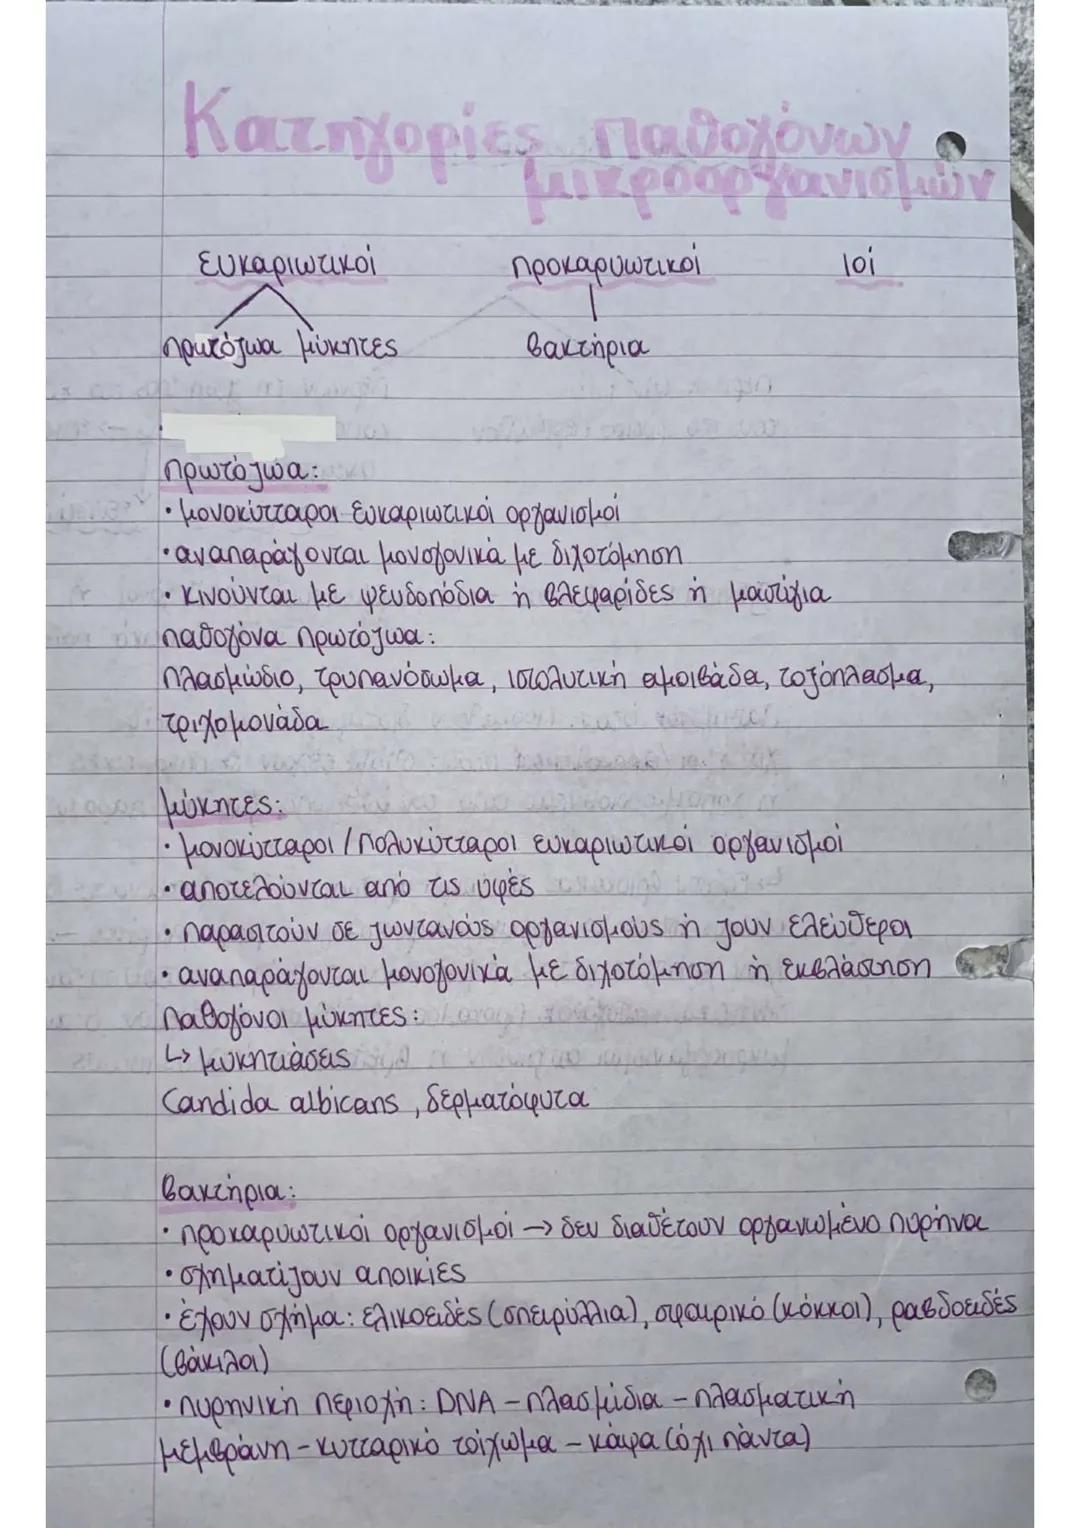 Κατηγορίες παθογόνων
μικροοργανισμών
ευκαριωτικοί προκαρυωτικοί ιοί
πρωτόζωα μύκητες βακτήρια
πρωτόζωα:
• μονοκύτταροι ευκαριωτικοί οργανισμοί
• αναπαράγονται μονογονικά με διχοτόμηση
• κινούνται με ψευδοπόδια ή βλεφαρίδες ή μαστίγια
παθογόνα πρωτόζωα:
πλασμώδιο, τρυπανόσωμα, ιστολυτική αμοιβάδα, τοξόπλασμα,
τριχομονάδα
μύκητες:
• μονοκύτταροι / πολυκύτταροι ευκαριωτικοί οργανισμοί
• αποτελούνται από τις υφές
• παρασιτούν σε ζωντανούς οργανισμούς ή ζουν ελεύθεροι
• αναπαράγονται μονογονικά με διχοτόμηση ή εκβλάστηση
παθογόνοι μύκητες:
↳ μυκητιάσεις
Candida albicans, δερματόφυτα
βακτήρια:
• προκαρυωτικοί οργανισμοί → δεν διαθέτουν οργανωμένο πυρήνα
• σχηματίζουν αποικίες
• έχουν σχήμα: ελικοειδές (σπειρύλλια), σφαιρικό (κόκκοι), ραβδοειδές
(βάκιλοι)
• πυρηνική περιοχή: DNA - πλασμίδια - πλασματική
μεμβράνη - κυτταρικό τοίχωμα - κάψα (όχι πάντα)